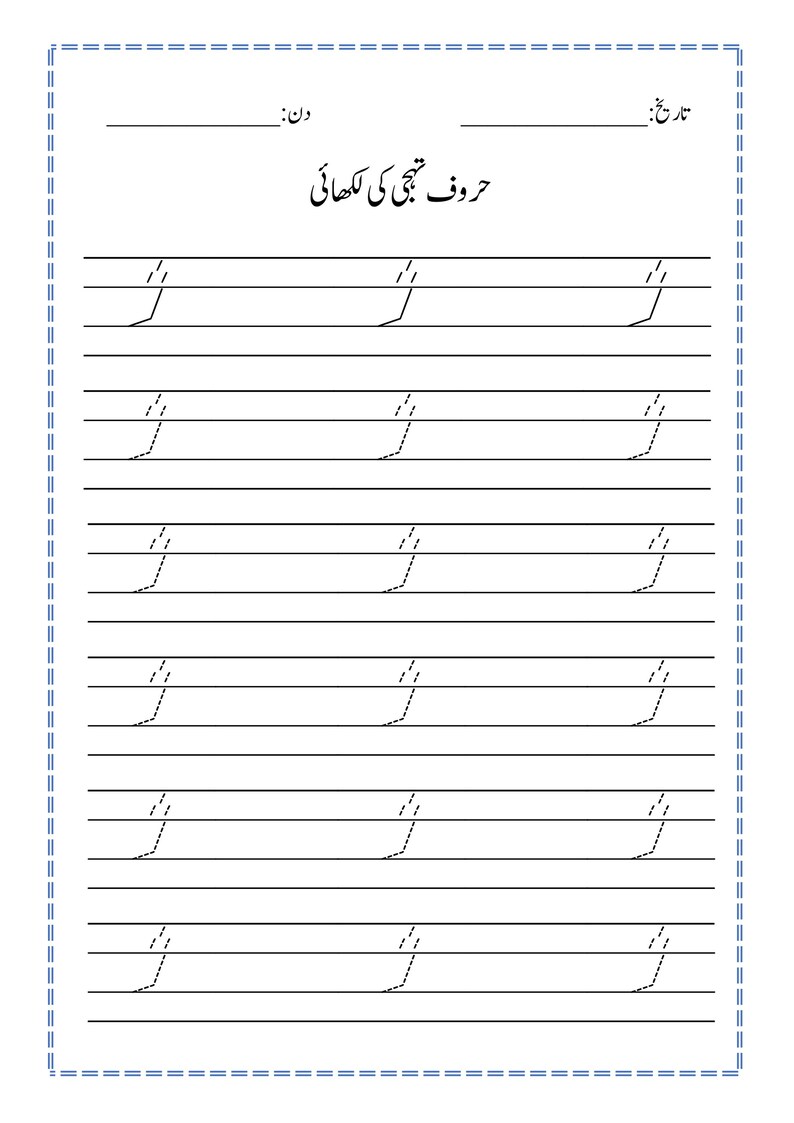 تاریخ:_______________ دن:_______________
حروف تہجی کی لکھائی
ژ ژ ژ
ژ ژ ژ
ژ ژ ژ
ژ ژ ژ
ژ ژ ژ
ژ ژ ژ